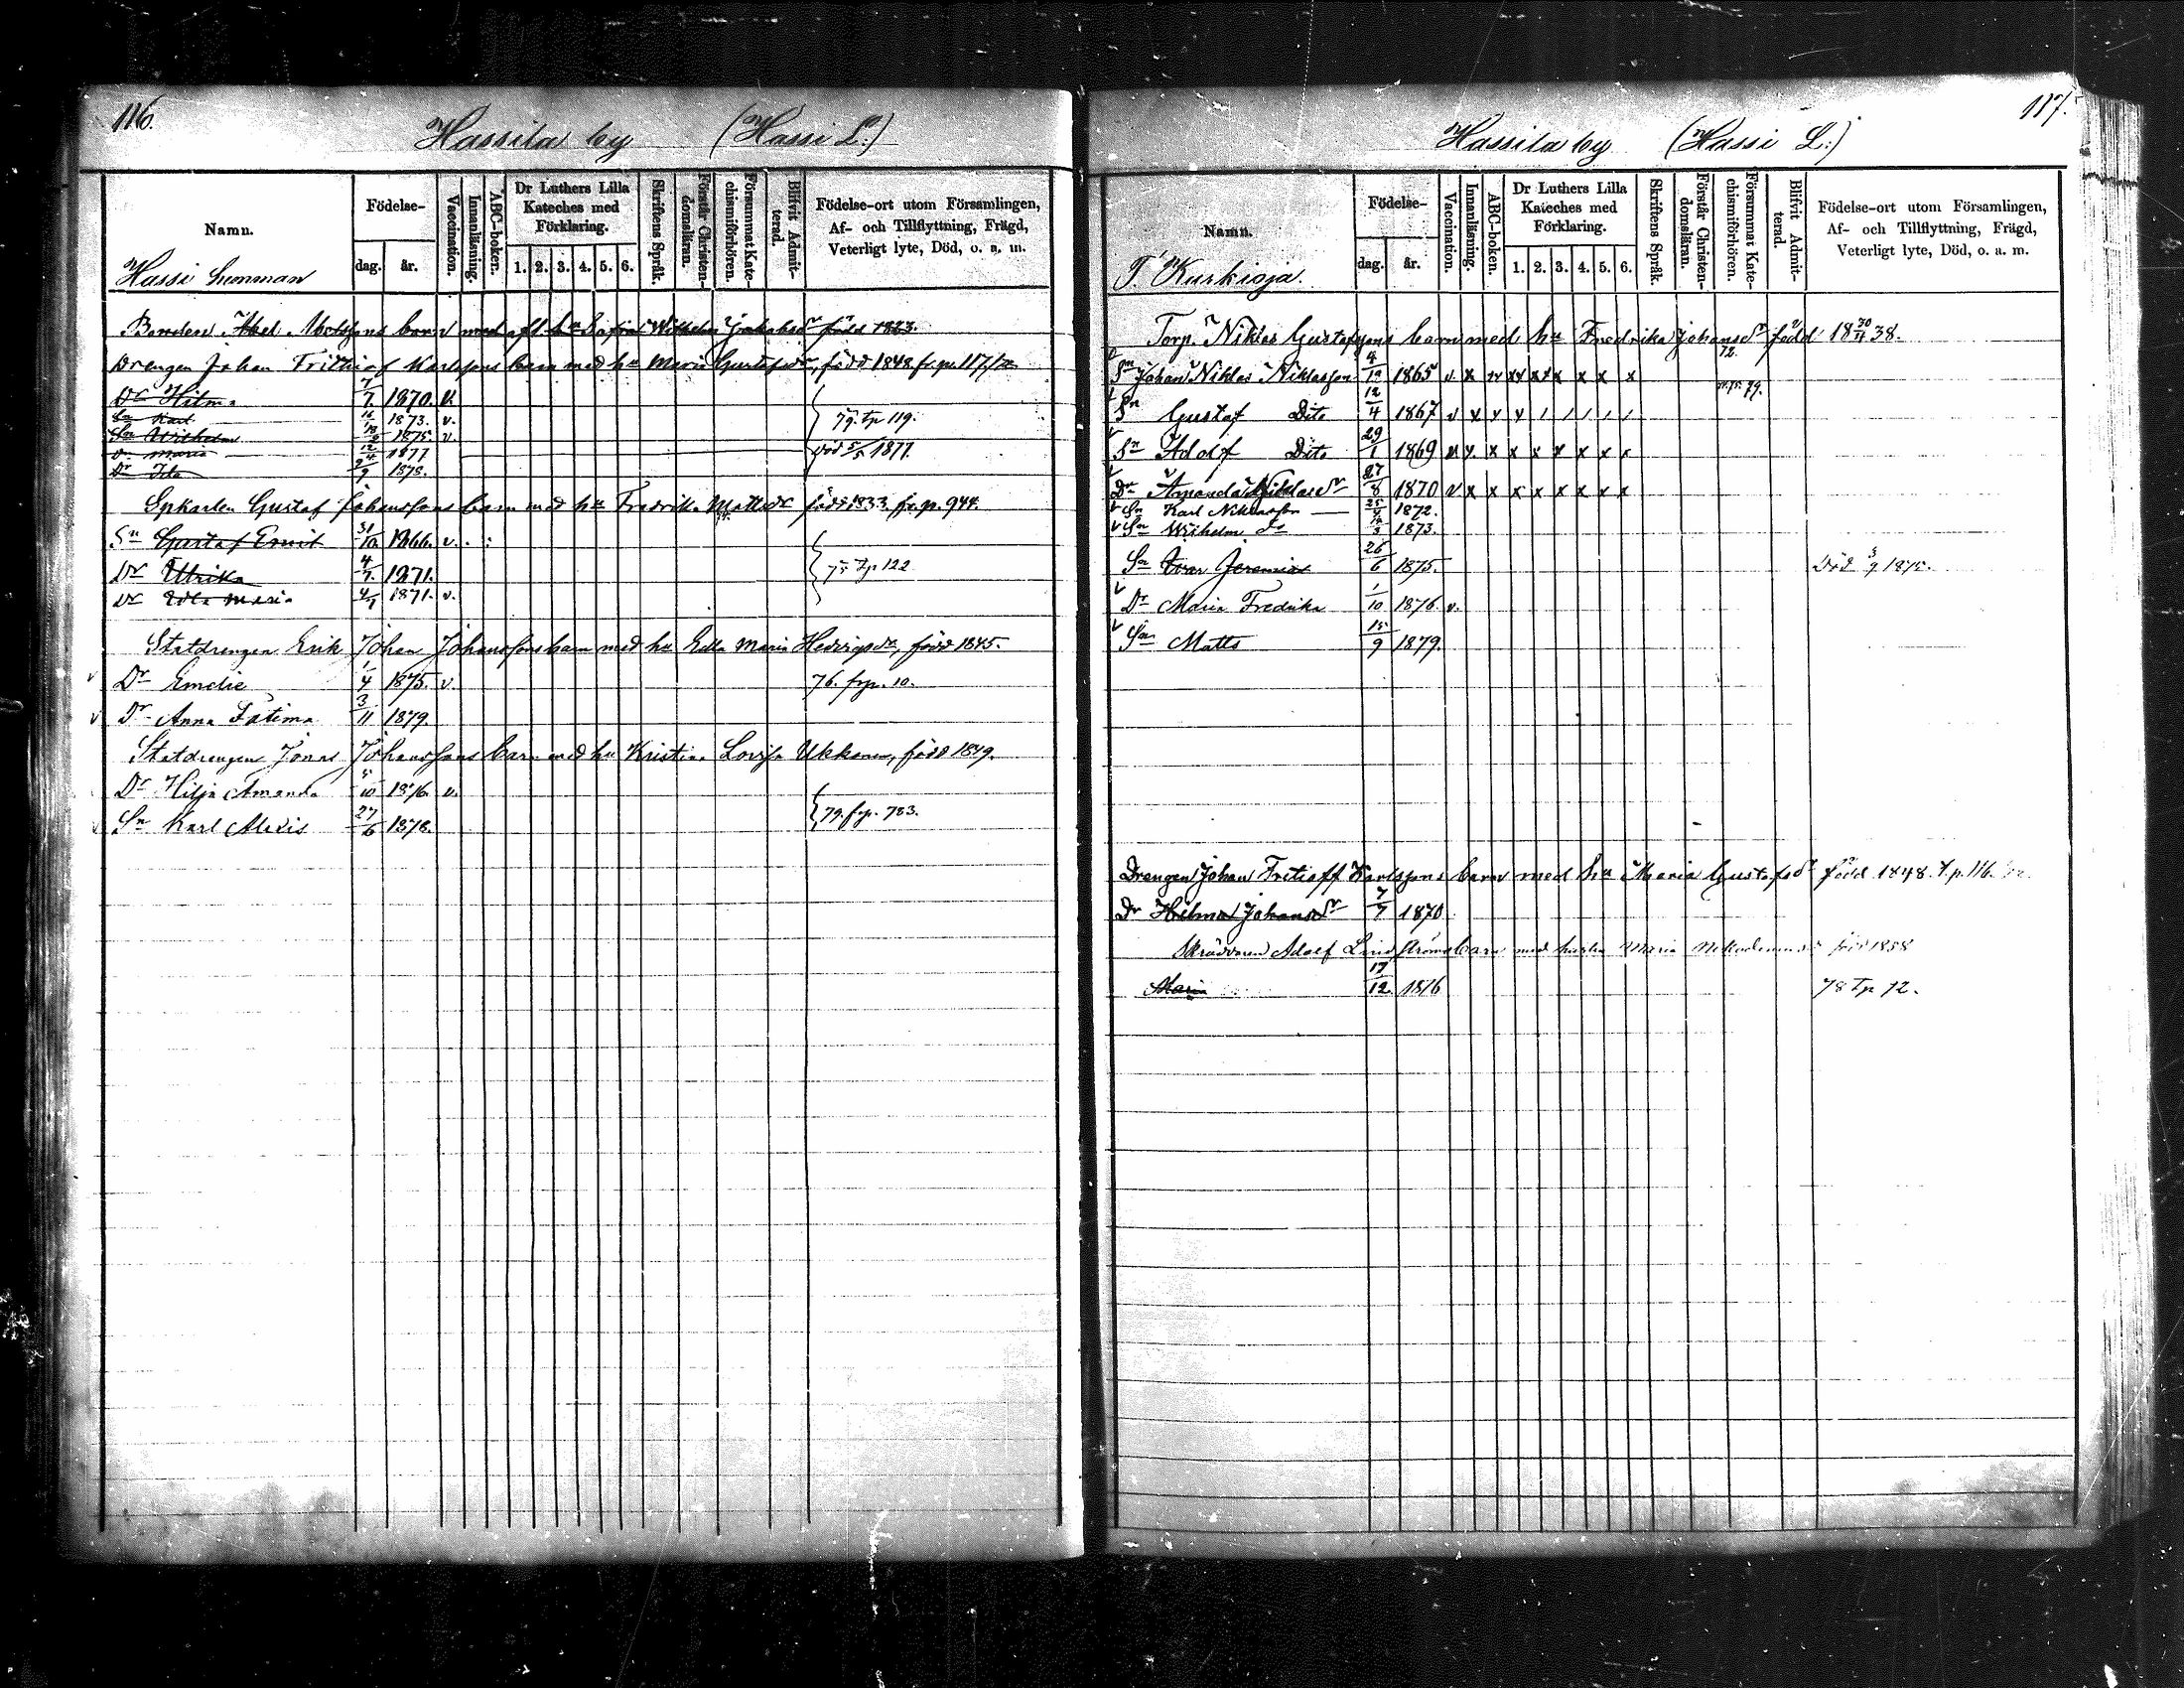 116.
Hassila by (Hassi L:)
Namn.
Födelse-
dag. år.
Vaccination.
Innanläsning.
ABC-boken.
Dr Luthers Lilla Kateches med Förklaring.
1. 2. 3. 4. 5. 6.
Skriftens Språk.
Förstår Christen-domsläran.
Försummat Kate-chismiförhören.
Blifvit Admit-terad.
Födelse-ort utom Församlingen, Af- och Tillflyttning, Frägd, Veterligt lyte, Död, o. a. m.
Hassi
Bonden barn med född 1823.
Drengen Johan Frithiof Karlssons barn med hu Maria Gustafsdr, född 1848. fr. p. 117/
Dr Hilma 7/7. 1870. v.
Sn Karl 1873. v. 79. tp 119.
Sn Wilhelm 1875. v
Dr Maria 12/4 1877 död 5/5 1877.
Dr Ida 2/9 1878.
Gustaf Johanssons barn med hu Fredrika Mattsdr född 1833. fr. p. 944.
Sn Gustaf Emil 31/10 1866. v.
Dr Ulrika 4/7. 1871. 75 tp 122
Dr Edla Maria 4/7 1871. v.
Statdrengen Erik Johan Johanssons barn med hu Edla Maria Hedvigsdr, född 1845.
v Dr Emelie 1/4 1875. v. 76. frp. 10.
v Dr Anna Fatima 3/11 1879.
Statdrengen Jonas Johanssons barn med hu Kristina Lovisa Ukkonen, född 1849.
Dr Hilja Amanda 5/10 1876. v.
Sn Karl Alexis 27/6 1878. 79. frp. 783.
117.
Hassila by (Hassi L:)
Namn.
Födelse-
dag. år.
Vaccination.
Innanläsning.
ABC-boken.
Dr Luthers Lilla Kateches med Förklaring.
1. 2. 3. 4. 5. 6.
Skriftens Språk.
Förstår Christen-domsläran.
Försummat Kate-chismiförhören.
Blifvit Admit-terad.
Födelse-ort utom Församlingen, Af- och Tillflyttning, Frägd, Veterligt lyte, Död, o. a. m.
T. Kurkioja.
Torp. Niklas Gustafssons barn med hu Fredrika Johansdr född 18 30/11 38.
Sn Johan Niklas Niklasson 4/12 1865 v x x x x x x x x 72.
v Sn Gustaf Dito 12/4 1867 v x x x / / / / / 79.
v Sn Adolf Dito 29/1 1869 v x x x x x x x x
v Dr Amanda Niklasdr 27/8 1870 v x x x x x x x x
v Sn Karl Niklasson 1872.
v Sn Wilhelm Do 1873.
Sn Ivar Jeremias 26/6 1875. Död 3/9 1875.
v Dr Maria Fredrika 1/10 1876. v.
v Sn Matts 15/9 1879.
Drengen Johan Fritioff Karlssons barn med hu Maria Gustafsdr född 1848. t. p. 116.
Dr Hilma Johansdr 7/7 1870
Skräddaren Adolf Lindströms barn med hustru Maria född 1858
Maria 17/12. 1876 78 tp 72.